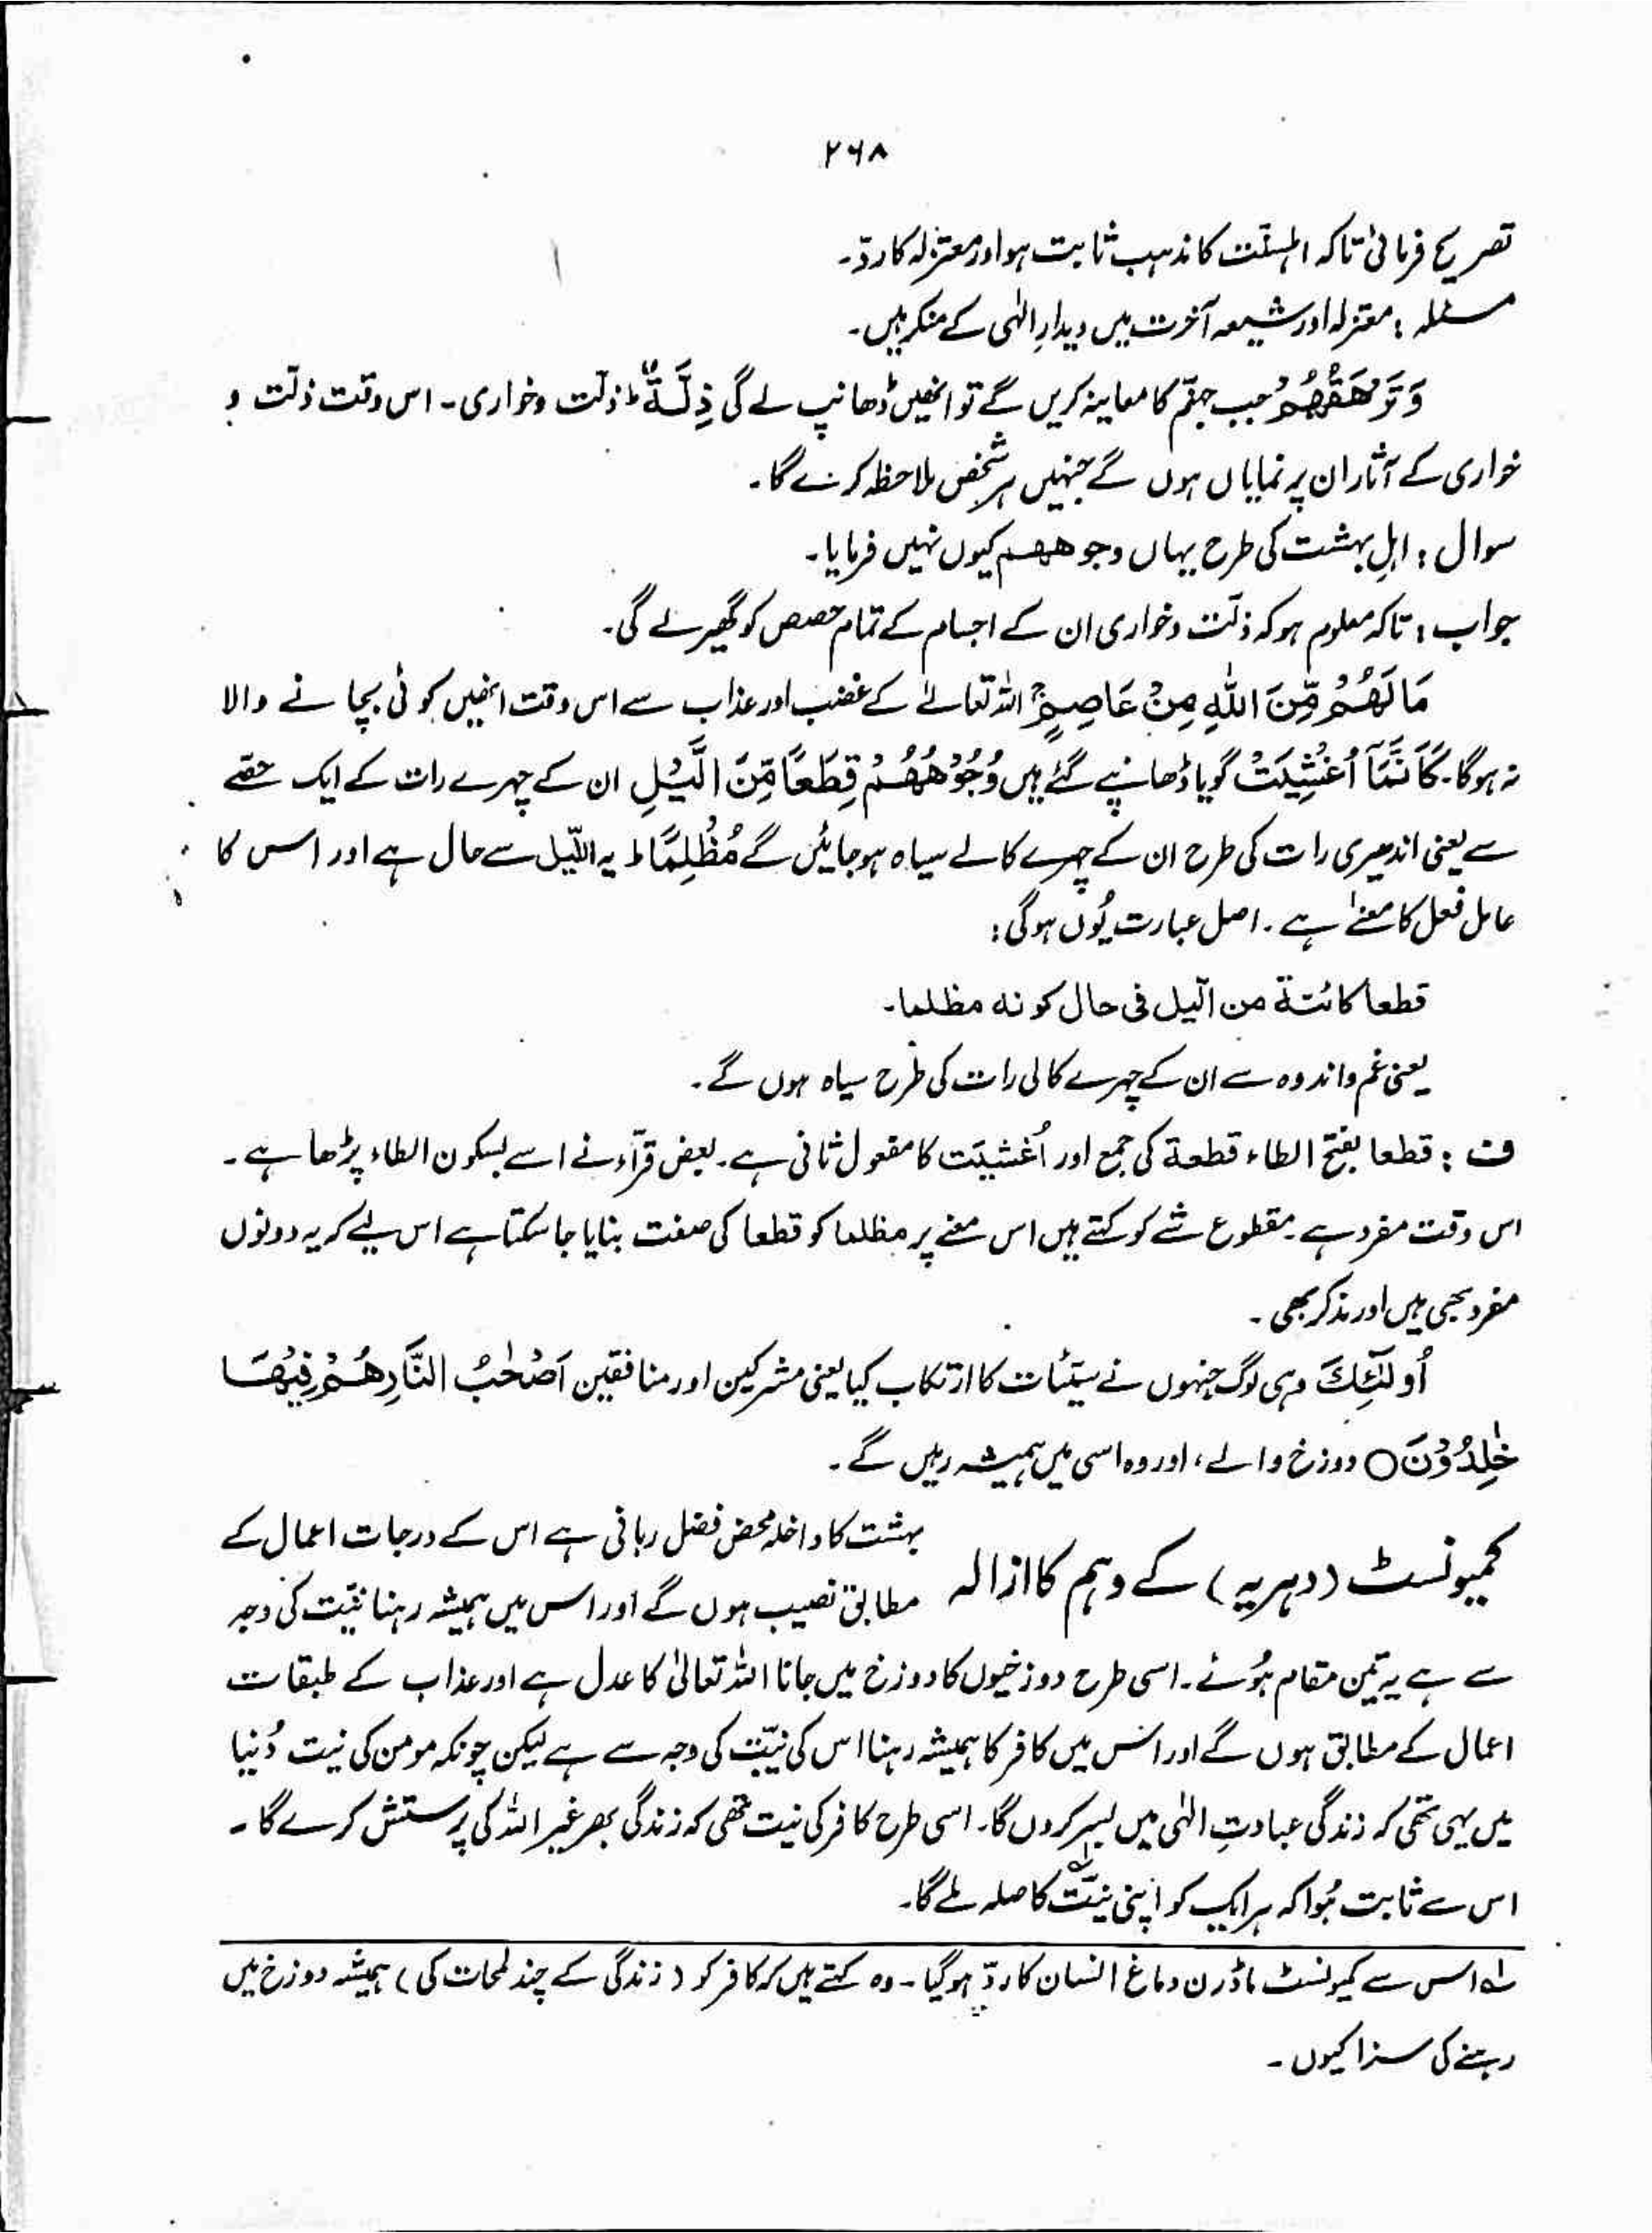 ۲۶۸
تصریح فرمائی تاکہ اہلسنّت کا مذہب ثابت ہو اور معتزلہ کا ردّ۔
مسئلہ : معتزلہ اور شیعہ آخرت میں دیدارِ الٰہی کے منکر ہیں۔
وَتَرْهَقُهُمْ جب جہنّم کا معاینہ کریں گے تو انھیں ڈھانپ لے گی ذِلَّةٌ ط ذلّت و خواری۔ اس وقت ذلّت و
خواری کے آثار ان پر نمایاں ہوں گے جنہیں ہر شخص ملاحظہ کرے گا۔
سوال : اہلِ بہشت کی طرح یہاں وجوههم کیوں نہیں فرمایا۔
جواب : تاکہ معلوم ہو کہ ذلّت و خواری ان کے اجسام کے تمام حصص کو گھیر لے گی۔
مَا لَهُمْ مِّنَ اللّٰهِ مِنْ عَاصِمٍ ج اللہ تعالےٰ کے غضب اور عذاب سے اس وقت انھیں کوئی بچانے والا
نہ ہوگا۔ كَاَنَّمَآ اُغْشِيَتْ گویا ڈھانپے گئے ہیں وُجُوْهُهُمْ قِطَعًا مِّنَ الَّيْلِ ان کے چہرے رات کے ایک حصّے
سے یعنی اندھیری رات کی طرح ان کے چہرے کالے سیاہ ہوجائیں گے مُظْلِمًا ط یہ اللّیل سے حال ہے اور اس کا
عامل فعل کا معنےٰ ہے۔ اصل عبارت یُوں ہوگی :
قطعا کائنة من الّیل فی حال کونه مظلما۔
یعنی غم و اندوہ سے ان کے چہرے کالی رات کی طرح سیاہ ہوں گے۔
ف : قطعا بفتح الطاء قطعة کی جمع اور اُغشیَت کا مفعول ثانی ہے۔ بعض قرّاء نے اسے بسکون الطاء پڑھا ہے۔
اس وقت مفرد ہے۔ مقطوع شے کو کہتے ہیں اس معنے پر مظلما کو قطعا کی صفت بنایا جاسکتا ہے اس لیے کہ یہ دونوں
مفرد بھی ہیں اور مذکر بھی۔
اُولٰٓئِكَ وہی لوگ جنہوں نے سیّئات کا ارتکاب کیا یعنی مشرکین اور منافقین اَصْحٰبُ النَّارِ هُمْ فِيْهَا
خٰلِدُوْنَ ○ دوزخ والے، اور وہ اسی میں ہمیشہ رہیں گے۔
کمیونسٹ (دہریہ) کے وہم کا ازالہ
بہشت کا داخلہ محض فضل ربانی ہے اس کے درجات اعمال کے
مطابق نصیب ہوں گے اور اس میں ہمیشہ رہنا نیّت کی وجہ
سے ہے یہ تین مقام ہُوئے۔ اسی طرح دوزخیوں کا دوزخ میں جانا اللہ تعالیٰ کا عدل ہے اور عذاب کے طبقات
اعمال کے مطابق ہوں گے اور اس میں کافر کا ہمیشہ رہنا اس کی نیّت کی وجہ سے ہے لیکن چونکہ مومن کی نیت دُنیا
میں یہی تھی کہ زندگی عبادتِ الٰہی میں بسر کروں گا۔ اسی طرح کافر کی نیت تھی کہ زندگی بھر غیر اللہ کی پرستش کرے گا۔
اس سے ثابت ہُوا کہ ہر ایک کو اپنی نیّت لہ کا صلہ ملے گا۔
لہ اس سے کمیونسٹ ماڈرن دماغ انسان کا ردّ ہوگیا۔ وہ کہتے ہیں کہ کافر کو (زندگی کے چند لمحات کی) ہمیشہ دوزخ میں
رہنے کی سزا کیوں۔